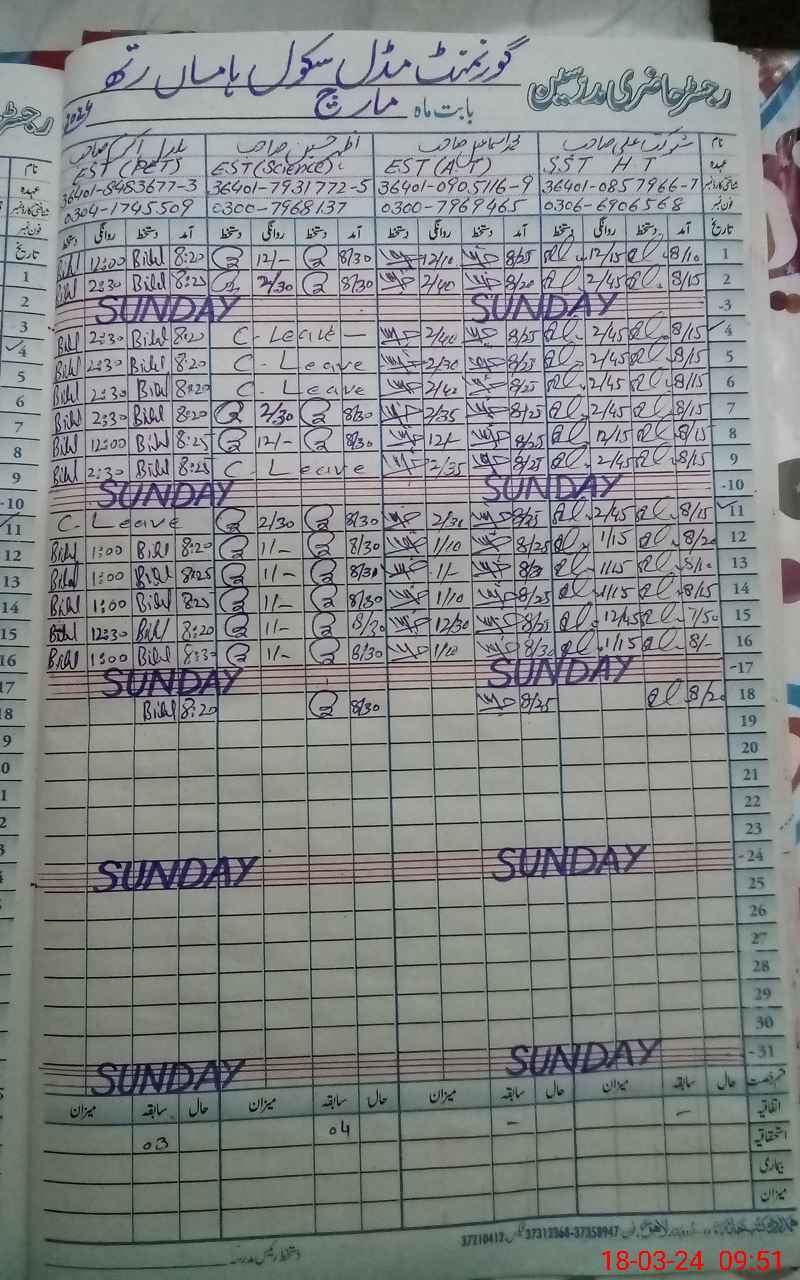 گورنمنٹ مڈل سکول ہاماں رتھ
رجسٹر حاضری مدرسین
بابت ماہ مارچ 2024
نام شوکت علی صاحب محمد اسماعیل صاحب اظہر حسین صاحب صاحب
عہدہ SST HT EST (AT) EST (Science) EST (PET)
شناختی کارڈ نمبر 36401-0857966-7 36401-0905116-9 36401-7931772-5 36401-8483677-3
فون نمبر 0306-6906568 0300-7969465 0300-7968137 0304-1745509
تاریخ آمد دستخط روانگی دستخط آمد دستخط روانگی دستخط آمد دستخط روانگی دستخط آمد دستخط روانگی دستخط
1 8/10 12/15 8/25 12/10 8/30 12/- 8:20 Bilal 12:00 Bilal
2 8/15 2/45 8/20 2/40 8/30 2/30 8:25 Bilal 2:30 Bilal
-3 SUNDAY SUNDAY
4 8/15 2/45 8/25 2/40 C. Leave 8:20 Bilal 2:30 Bilal
5 8/15 2/45 8/25 2/30 C. Leave 8:20 Bilal 2:30 Bilal
6 8/15 2/45 8/25 2/40 C. Leave 8:20 Bilal 2:30 Bilal
7 8/15 2/45 8/25 2/35 8/30 2/30 8:20 Bilal 2:30 Bilal
8 8/15 12/15 8/25 12/- 8/30 12/- 8:25 Bilal 12:00 Bilal
9 8/15 2/45 8/25 2/35 C. Leave 8:25 Bilal 2:30 Bilal
-10 SUNDAY SUNDAY
11 8/15 2/45 8/25 2/30 8/30 2/30 C. Leave
12 8/20 1/15 8/25 1/10 8/30 1/- 8:20 Bilal 1:00 Bilal
13 8/10 1/15 8/30 1/- 8/30 1/- 8:25 Bilal 1:00 Bilal
14 8/15 1/15 8/25 1/10 8/30 1/- 8:25 Bilal 1:00 Bilal
15 7/50 12/45 8/25 12/30 8/30 1/- 8:20 Bilal 12:30 Bilal
16 8/- 1/15 8/30 1/10 8/30 1/- 8:30 Bilal 1:00 Bilal
-17 SUNDAY SUNDAY
18 8/20 8/25 8/30 8:20 Bilal
19
20
21
22
23
-24 SUNDAY SUNDAY
25
26
27
28
29
30
-31 SUNDAY SUNDAY
قسم رخصت حال سابقہ میزان حال سابقہ میزان حال سابقہ میزان حال سابقہ میزان
اتفاقیہ - - 04 03
استحقاقیہ
بیماری
میزان
دستخط رئیس مدرسہ
37210417 37313368-37358947
18-03-24 09:51